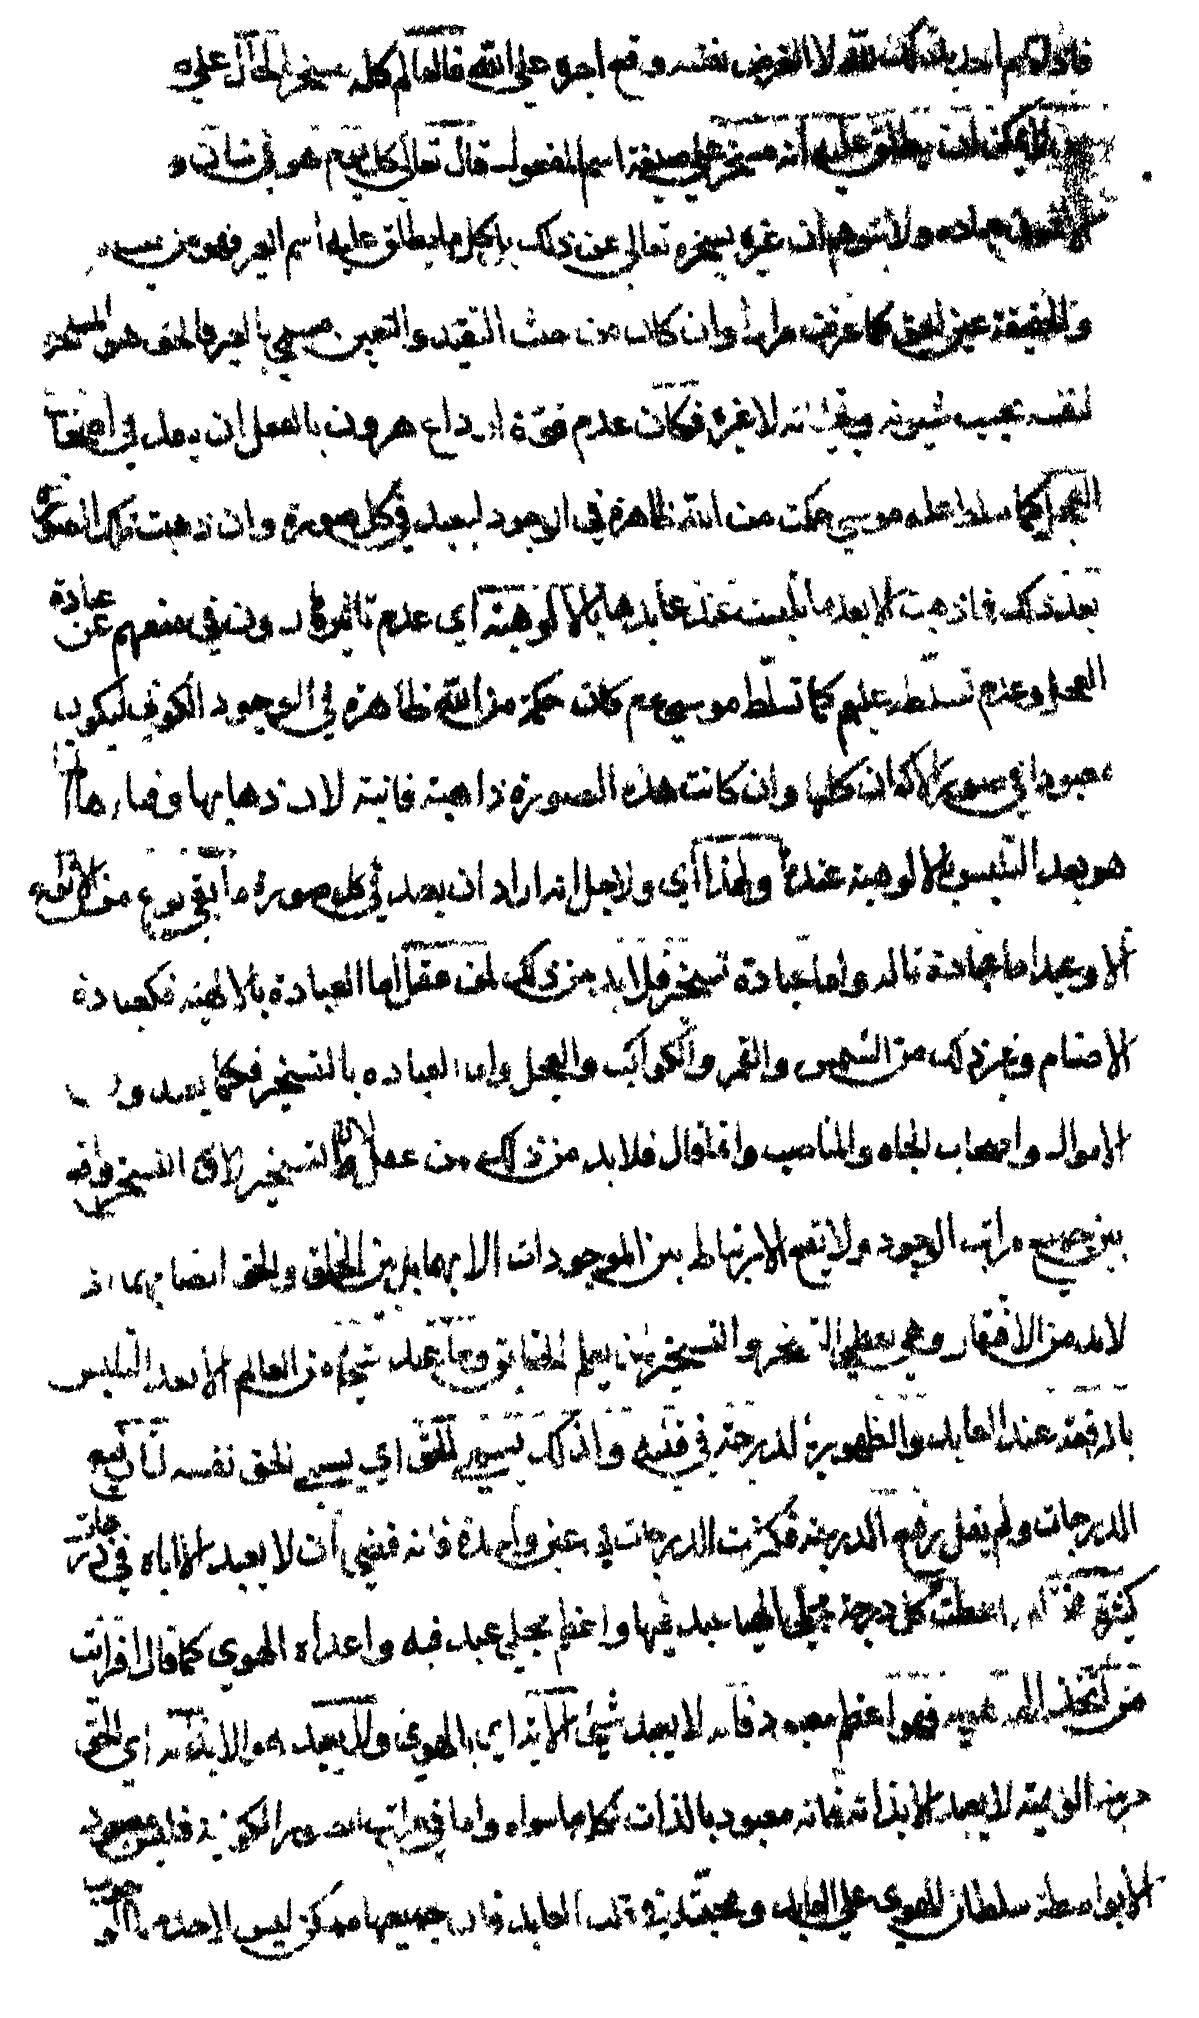 وقع اجره على الله فالعالم كله يسخر بالحال
لا يمكن ان يطلق عليه أنه مسخر على صيغة اسم المفعول قال تعالى كل يوم هو في شأن و
عباده ولا يتوهم ان غيره يسخره تعالى عن ذلك بل كل ما يطلق عليه اسم الغير فهو من حيث
والحقيقة عين الحق كما عرفت مرارا وان كان من حيث التقيد والتعين مسمى بالغير فالحق هو المسخر
لنفسه بحسب شيونه لا غيره فكان عدم قوة ارداع هرون بالفعل ان ينفذ في أصحاب
العجل كما سلط عليه موسى حكمة من الله ظاهرة في الوجود ليعبد في كل صورة وان ذهبت تلك الصورة
بعد ذلك فما ذهبت الا بعد ما تلبست عند عابدها بالألوهية أي عدم تأثير هارون في منعهم عن عبادة
العجل وعدم تسلطه عليهم كما تسلط موسى عم كان حكمة من الله ظاهرة في الوجود الكوني ليكون
معبودا في صور الأكوان كلها وان كانت هذه الصورة ذاهبة فانية لان ذهابها وفناءها انما
هو بعد التلبس بالألوهية عند ولهذا أي ولاجل انه اراد ان يعبد في كل صورة ما بقي نوع من الأنواع
الا وعبد اما عبادة تأله واما عبادة تسخير فلا بد من ذلك لمن عقل اما العبادة بالالهية فكعبادة
الاصنام وغير ذلك من الشمس والقمر والكواكب والعجل واما العبادة بالتسخير فكما يعبدون
الاموال واصحاب الجاه والمناصب وانما قال فلا بد من ذلك من عقل لان التسخير
بين جميع مراتب الوجود ولا يقع الارتباط بين الموجودات الا بهما بل بين الخلق والحق ايضا بهما اذ
لا بد من الافتقار وهو يعطي التسخر والتسخير لمن يعلم الحقايق وما عبد شيء من العالم الا بعد التلبس
بالرفعة عند العابد والظهور بالدرجة في قلبه وكذلك يسمى الحق أي يسمى الحق نفسه لنا رفيع
الدرجات ولم يقل رفيع الدرجة فكثرت الدرجات في عين واحدة فانه قضى أن لا يعبد الا اياه في درجات
كثيرة اعطت كل درجة مجلى الهيا عبد فيها واعظم مجلى عبد فيه واعلاه الهوى كما قال افرأيت
من اتخذ الهه هويه فهو اعظم معبود فانه لا يعبد شيء الا به أي بالهوى ولا يعبد هو الا بذاته أي الحق
من الوهيته لا يعبد الا بذاته فانه معبود بالذات لكل ما سواه واما في مراتبه الكونية فليس معبود
الا بواسطة سلطان الهوى على العابد ومحبته في قلب العابد فان جميعها ممكن ليس لاحد